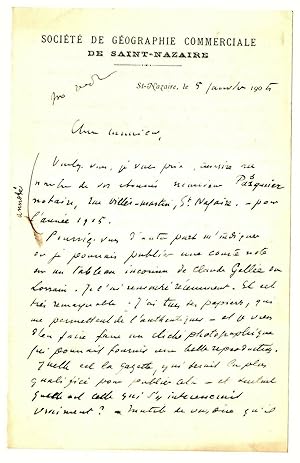 SOCIÉTÉ DE GÉOGRAPHIE COMMERCIALE
DE SAINT-NAZAIRE
St-Nazaire, le 5 janvier 1905
Cher monsieur,
Veuillez, je vous prie, inscrire au
nombre de vos abonnés monsieur Pasquier
notaire, rue Villès-Martin, St Nazaire - pour
l'année 1905.
annoté
Pourriez-vous d'autre part m'indiquer
où je pourrais publier une courte note
sur un tableau inconnu de Claude Gellée dit
Lorrain. Je l'ai rencontré récemment. Il est
très remarquable. J'ai tous les papiers, qui
me permettent de l'authentiquer - et je viens
d'en faire faire un cliché photographique
qui pourrait fournir une belle reproduction.
Quelle est la gazette, qui serait la plus
qualifiée pour publier cela - et surtout
quelle est celle qui s'y intéresserait
vraiment ? - Inutile de vous dire qu'il